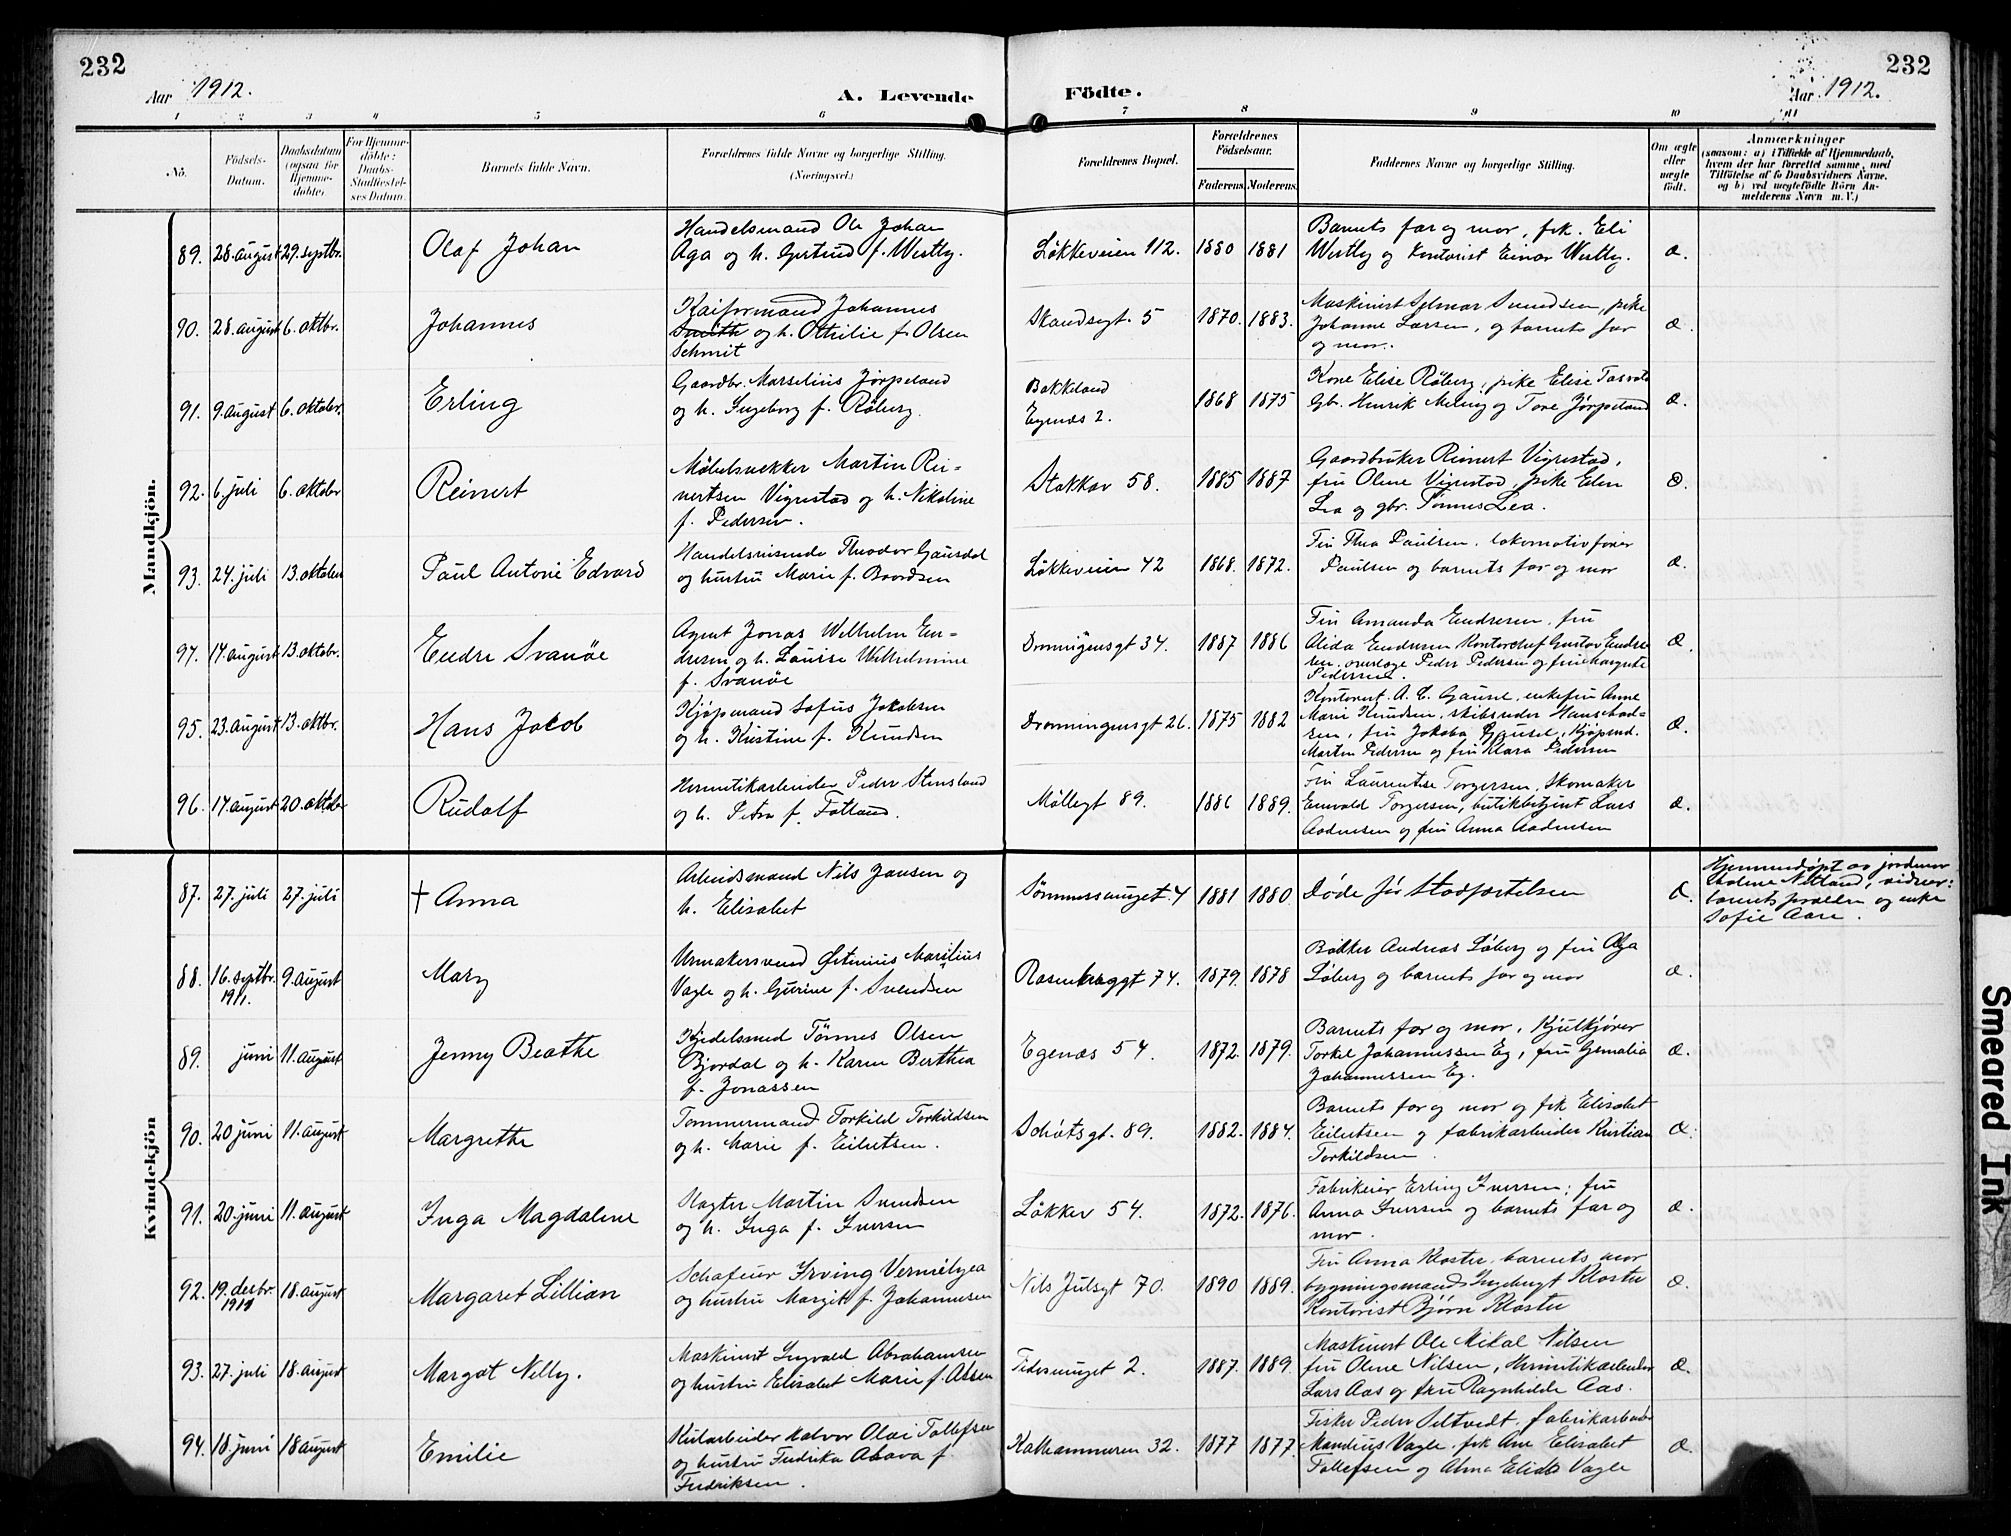 232
Aar 1912.
A. Levende Födte.
Aar 1912.
232
1 2 3 4 5 6 7 8 9 10 11
No.
Födsels-Datum.
Daabsdatum (ogsaa för Hjemme-döbte)
For Hjemme-döbte: Daabs-Stadfæstel-ses Datum.
Barnets fulde Navn.
Forældrenes fulde Navne og borgerlige Stilling.
(Næringsvei.)
Forældrenes Bopæl.
Forældrenes Födselsaar.
Faderens. Moderens.
Faddernes Navne og borgerlige Stilling.
Om ægte eller uægte födt.
Anmærkninger
(saasom: a) i Tilfælde af Hjemmedaab, hvem der har forrettet samme, med Tilföielse af to Daabsvidners Navne, og b) ved uægtefödte Börn An-melderens Navn m. V.)
Mandkjön.
89. 28. august 29. septbr. Olaf Johan
Handelsmand Ole Johan
Aga og h. Gertrud f. Westby.
Løkkeveien 112. 1880 1881
Barnets far og mor, frk. Eli
Westby og kontorist Einar Westby. æ.
90. 28. august 6. oktbr. Johannes
Kaiformand Johannes
Smith og h. Othilie f. Olsen
Schmit
Skandsegt. 5 1870. 1883.
Maskinist Selmar Svendsen, pike
Johanne Larsen, og barnets far
og mor. æ.
91. 9. august 6. oktober. Erling
Gaardbr. Marselius Jørpeland
og h. Ingeborg f. Røberg.
Bakkeland
Egenæs 2. 1868 1875
Kone Elise Røberg, pike Elise
Gb. Henrik Meling og Tore Jørpeland æ.
92. 6. juli 6. oktober Reinert
Møbelsnekker Martin Rei-
nertsen Vigrestad og h. Nikoline
f. Pedersen.
Stokkav 58. 1885 1887
Gaardbruker Reinert Vigrestad,
fru Oline Vigrestad, pike Elen
Lea og gbr. Tønnes Lea. æ.
93. 24. juli 13. oktober Paul Antoni Edvard
Handelsreisende Theodor Gausdal
og hustru Marie f. Baardsen
Løkkeveien 42 1868. 1872.
Fru Thea Paulsen, lokomotivfører
Paulsen og barnets far og mor æ.
94. 14. august 13. oktobr. Endre Svanøe
Agent Jonas Wilhelm En-
dresen og h. Louise Wilhelmine
f. Svanøe
Dronningensgt 34. 1887 1886
Fru Amanda Endresen, fru
Alida Endresen Kontorchef Gustav Endre
sen, overlæge Peder Pedersen og fru Margrete
Pedersen æ.
95. 23. august 13. oktbr. Hans Jacob
Kjøpmand Sofus Jakobsen
og h. Kristine f. Knudsen
Dronningensgt 26. 1875 1882
Kontorist A. C. Gausel, enkefru Anne
Marie Knudsen, skibsreder Hans
sen, fru Jakoba Gausel, Kjøpmd.
Martin Pedersen og fru Klara Pedersen æ.
96. 14. august 20. oktober Rudolf
Hermetikarbeider Peder Stensland
og h. Petra f. Fotland.
Møllegt 89. 1886 1889.
Fru Laurentse Torgersen, skomaker
Enevald Torgersen, butikbetjent Lars
Aadnesen og fru Anna Aadnesen æ.
Kvindekjön
87. 27. juli 27. juli † Anna
Arbeidsmand Nils Jansen og
h. Elisabet
Tømmersmuget 4 1881 1880.
Døde før Stadfæstelsen æ.
Hjemmedøpt av jordmor
Netland, vidner:
barnets forældre og enke
Sofie Aase.
88. 16. septbr. 1911. 9. august Mary
Urmakersvend Østenius Marselius
Vagle og h. Gurine f. Svendsen
Rosenkraggt 74. 1879. 1878
Bødker Andreas Løberg og fru Olga
Løberg og barnets far og mor æ.
89. juni 11. august Jenny Beathe
Kjedelsmed Tønnes Olsen
Bjordal og h. Karen Berthea
f. Jonassen
Egenæs 54. 1872. 1879.
Barnets far og mor, Hjulkjører
Torkel Johannessen Eg, fru Gemalia
Johannessen Eg. æ.
90. 20 juni 11. august Margrethe
Tømmermand Torkild Torkildsen
og h. Marie f. Eilertsen.
Schøtsgt. 89. 1882. 1884.
Barnets far og mor og frk Elisabet
Eilertsen og fabrikarbeider Kristian
Torkildsen. æ.
91. 20. juni 11. august Inga Magdalene
Slagter Martin Svendsen
og h. Inga f. Iversen
Løkkev 54. 1872. 1876.
Fabrikeier Erling Iversen, fru
Anna Iversen og barnets far og
mor. æ.
92. 19. desbr. 1911 18. august Margaret Lillian
Schafeur Irving Vermilyea
og hustru Margit f. Johannesen
Nils Julsgt 70. 1890 1889.
Fru Anna Kloster, barnets mor
bygningsmand Ingebrigt Kloster
Kontorist Bjørn Kloster æ.
93. 27. juli 18. august Margot Nelly.
Maskinist Ingvald Abrahamsen
og hustru Elisabet Marie f. Aasen
Fedesmuget 2. 1887. 1889
Maskinist Ole Mikal Nilsen
fru Oline Nilsen, Hermetikarbeider
Lars Aas og fru Ragnhilde Aas. æ.
94. 18. juni 18 august Emilie
Kularbeider Halvor Olai Tollefsen
og hustru Fredrika Aasava f.
Fredriksen.
Kalhammeren 32. 1877 1877.
Fisker Peder Seltvedt, fabrikarbeider
Mandius Vagle, frk Ane Elisabet
Tollefsen og Alma Elida Vagle æ.
Smeared Ink